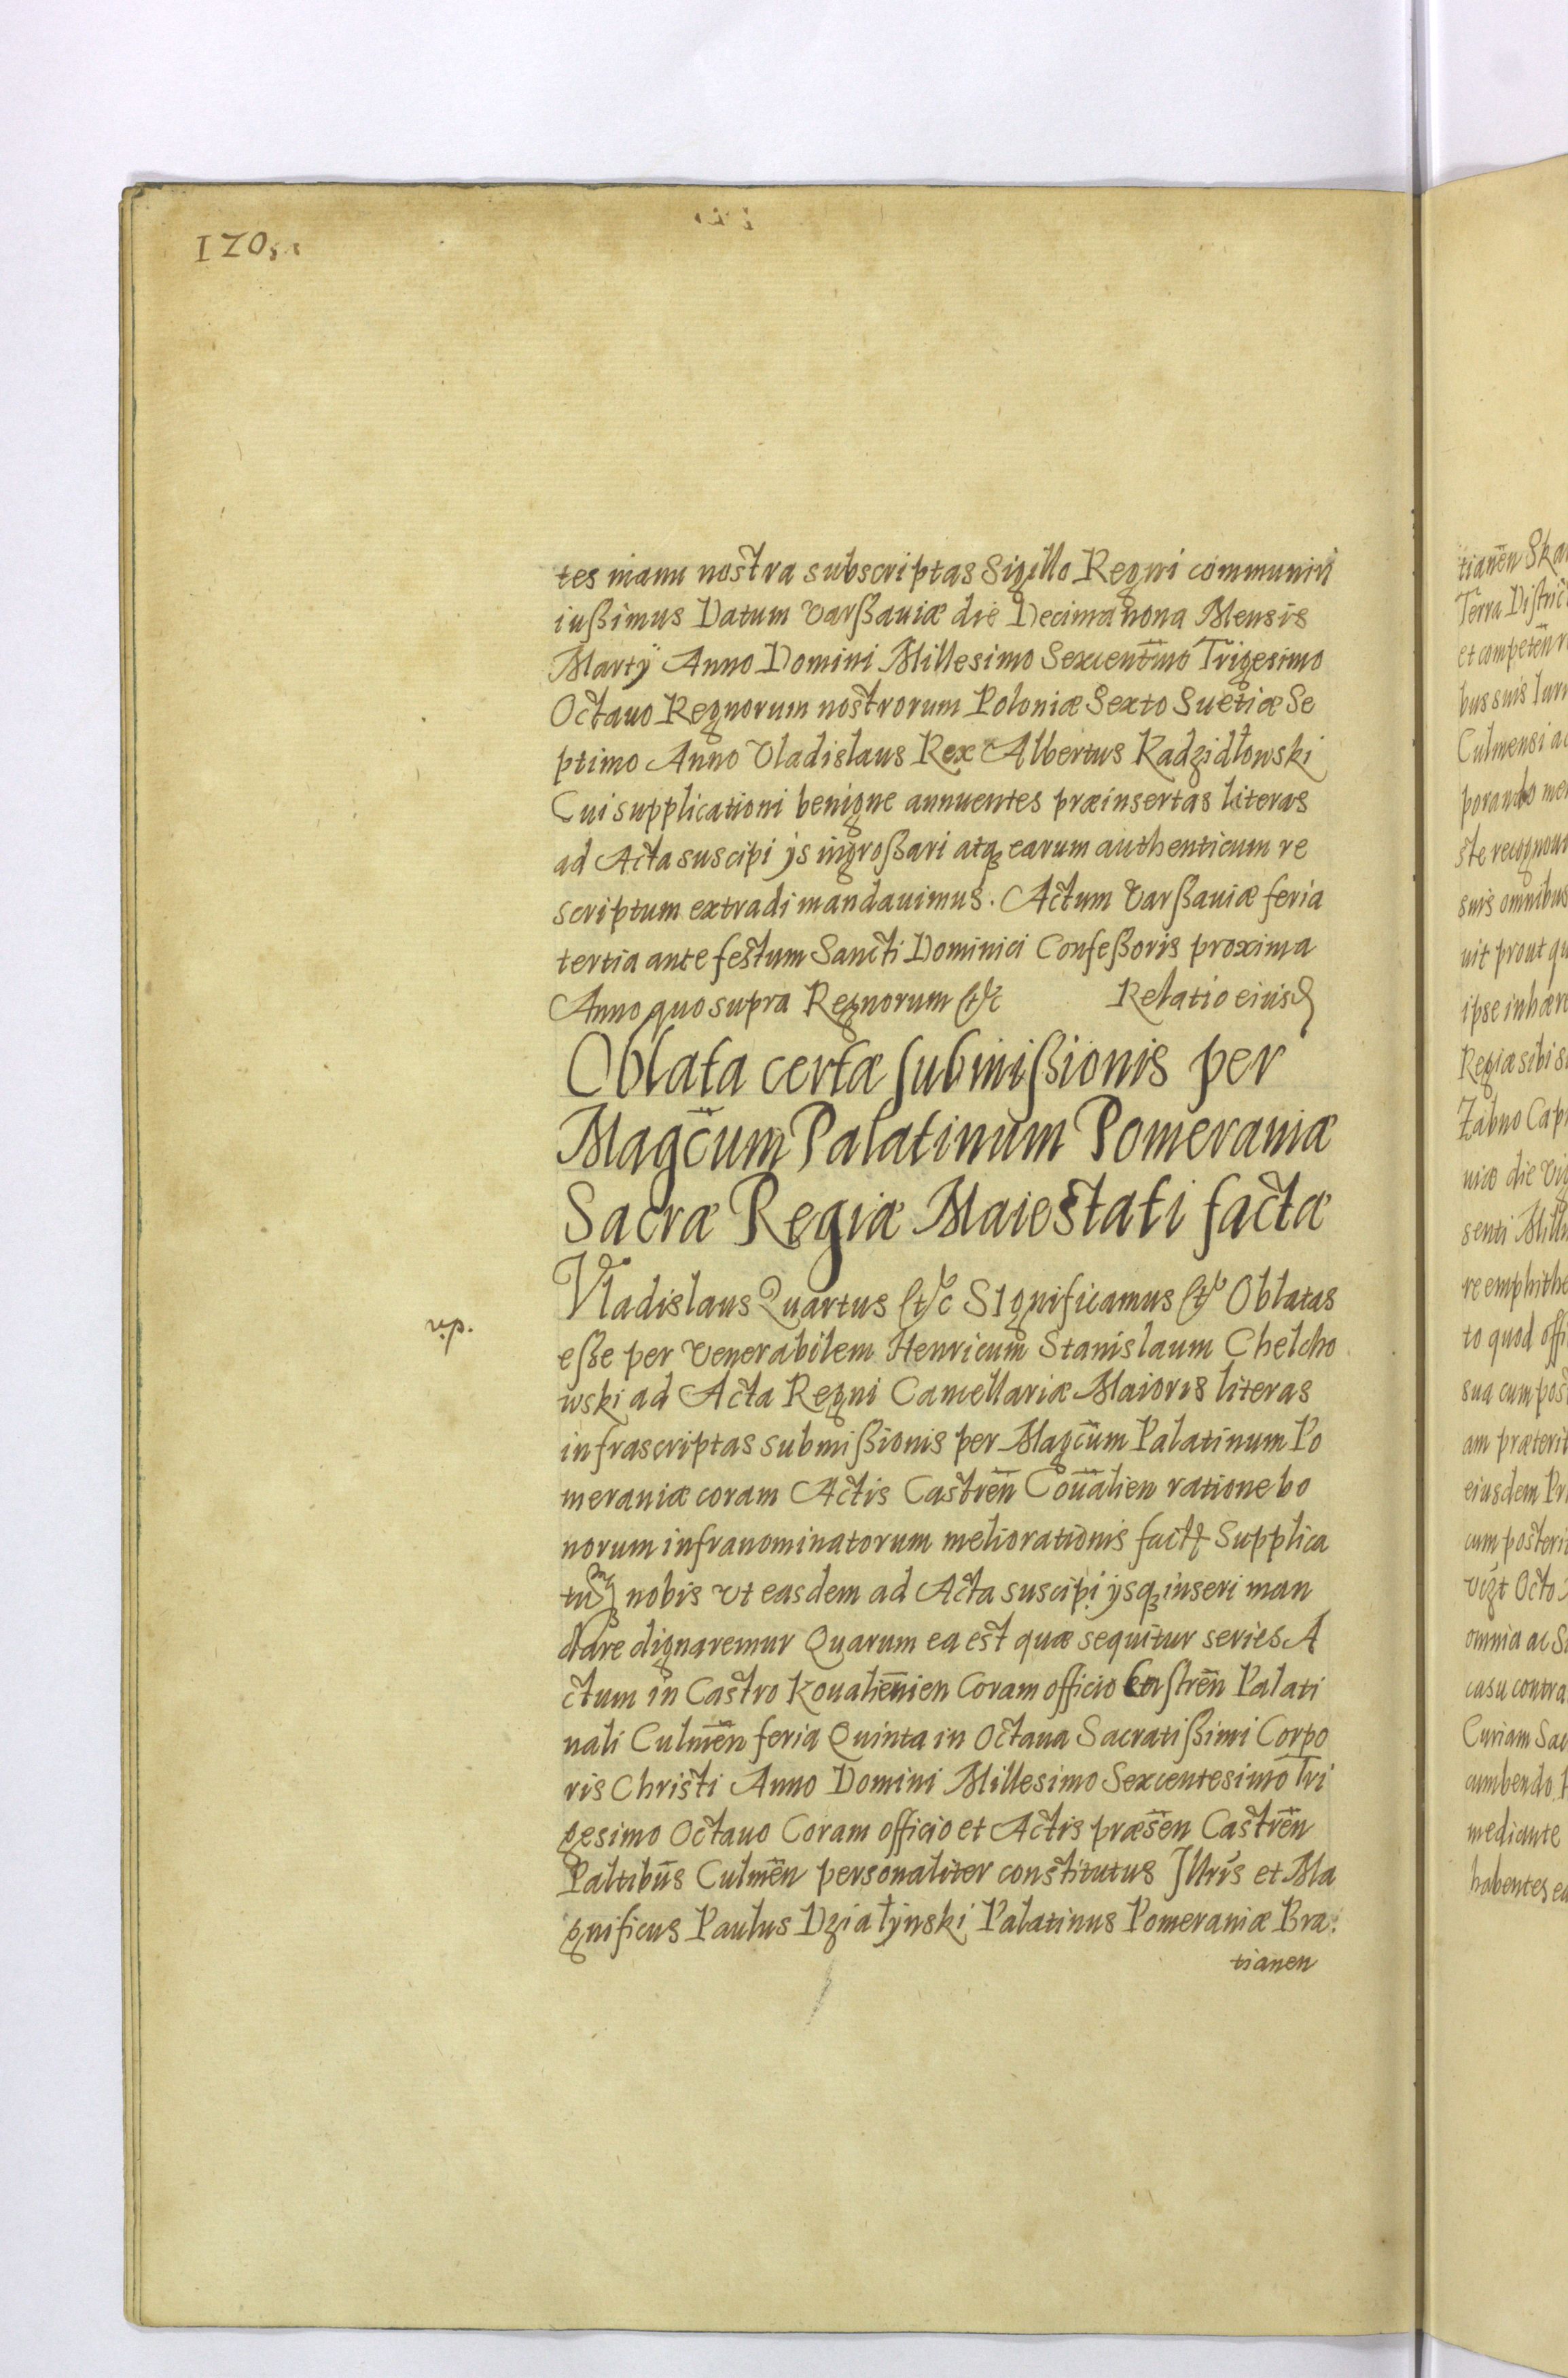 120
tes manu nostra subscriptas Sigillo Regni communiri
iußimus Datum Varßauiæ die Decima nona Mensis
Martÿ Anno Domini Millesimo Sexcentmo Trigesimo
Octauo Regnorum nostrorum Poloniæ Sexto Suetiæ Se
ptimo Anno Vladislaus Rex Albertus Radzidłowski
Cui supplicationi benigne annuentes præinsertas literas
ad Acta suscipi ijs ingroßari atq earum authenticum re
scriptum extradi mandauimus. Actum Varßauiæ feria
tertia ante festum Sancti Dominici Confeßoris proxima
Anno quo supra Regnorum etc Relatio eiusd
Oblata certæ submißionis per
Magcum Palatinum Pomeraniæ
Sacræ Regiæ Maiestati factæ
Vladislaus Quartus etc Significamus etc Oblatas
eße per Venerabilem Henricum Stanislaum Chelcho
wski ad Acta Regni Cancellariæ Maioris literas
infrascriptas submißionis per Magcum Palatinum Po
meraniæ coram Actis Castren Coualien ratione bo
norum infranominatorum meliorationis fact Supplica
tu nobis vt easdem ad Acta suscipi ijsq inseri man
dare dignaremur Quarum ea est quæ sequitur series A
ctum in Castro Koualienien Coram officio Castren Palati
nali Culmen feria Quinta in Octaua Sacratißimi Corpo
ris Christi Anno Domini Millesimo Sexcentesimo Tri
gesimo Octauo Coram officio et Actis præsen Castren
Paltibus Culmen personaliter constitutus Jllris et Ma
gnificus Paulus Dzialÿnski Palatinus Pomeraniæ Bra:
tianen
tianen
Terra
et competen
bus suis
Culmensi
porando
ste
suis omnibus
uit prout
ipse
Regiæ sibi
Zabno
die
senti
re
to quod
sua cum
am
eiusdem
cum
Octo
omnia ac
casu contra
Curiam
cumbendo
mediante
habentes